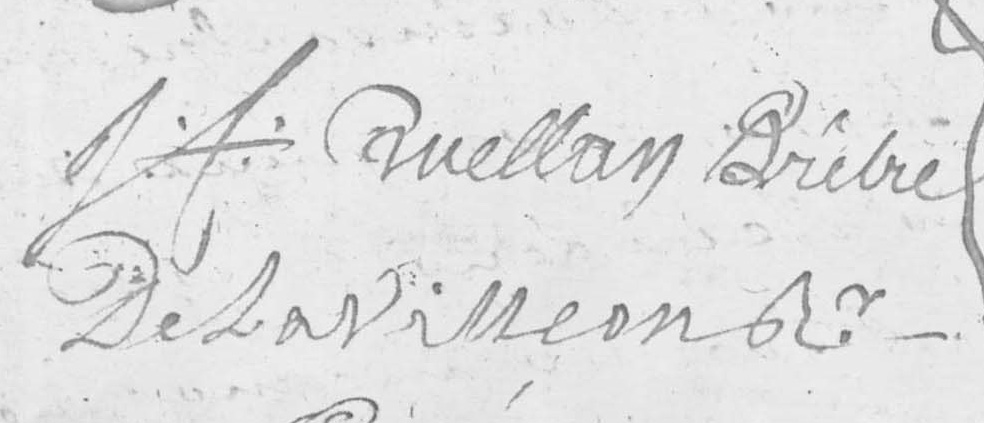 J. f. Ruellan Prêbre
De Lavilleon Rr